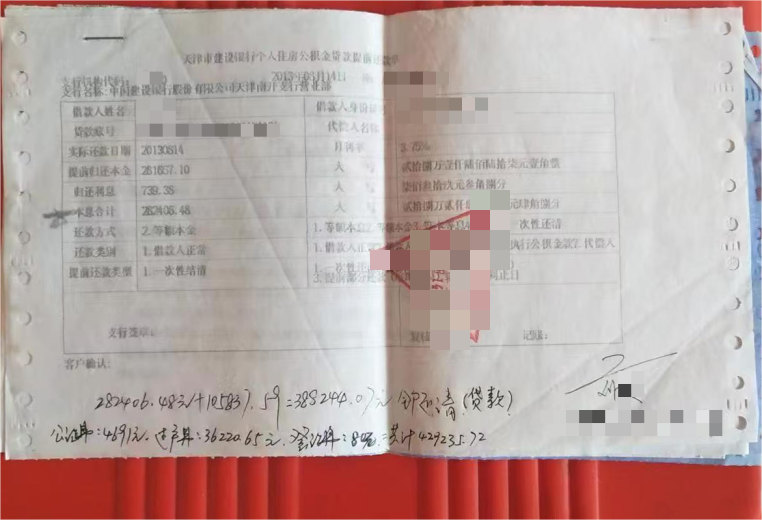 天津市建设银行个人住房公积金贷款提前还款单
支行机构代码: 2013年08月14日
支行名称:中国建设银行股份有限公司天津南开支行营业部
借款人姓名 借款人身份证
贷款账号 代偿人名称
实际还款日期 20130814 月利率 3.75%
提前归还本金 281667.10 大 写 贰拾捌万壹仟陆佰陆拾柒元壹角整
归还利息 739.38 大 写 柒佰叁拾玖元叁角捌分
本息合计 282406.48 大 写 贰拾捌万贰仟 元肆角捌分
还款方式 2.等额本金 1.等额本息2.等额本金3. 一次性还清
还款类别 1.借款人正常 1.借款人正常 执行公积金款 代偿人
提前还款类型 1.一次性结清 1.一次性
3.提前部分还款
支行签章: 复核 记账:
客户确认:
282406.48元+105837.59=388244.07元 全部还清(贷款)
公证费:4691元,过户费:36220.65元,登记费:80元 共计429235.72